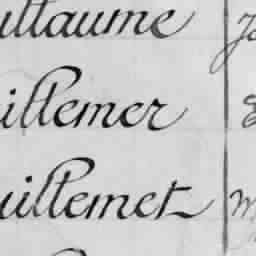 uillaume
uillemer
uillemet